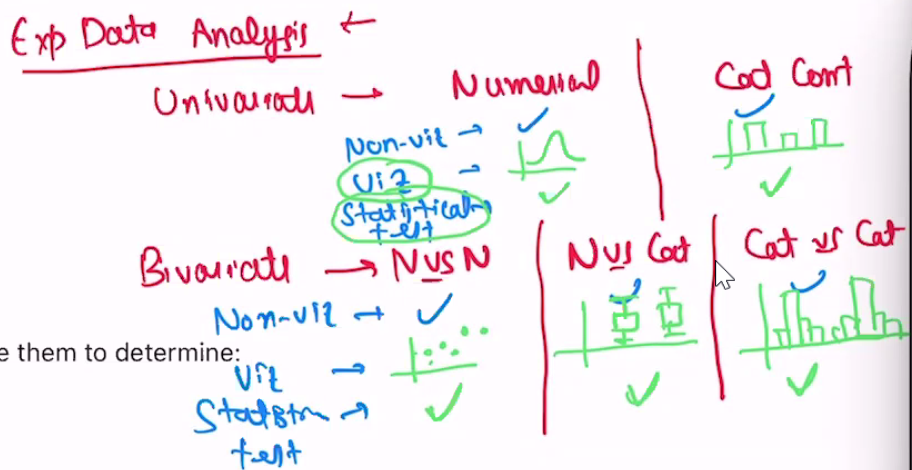 Exp Data Analysis ←
Univariate → Numerical
Cat Cont
Non-viz →
Viz →
Statistical test
Bivariate → N vs N
N vs Cat
Cat vs Cat
Non-viz →
e them to determine:
Viz →
test